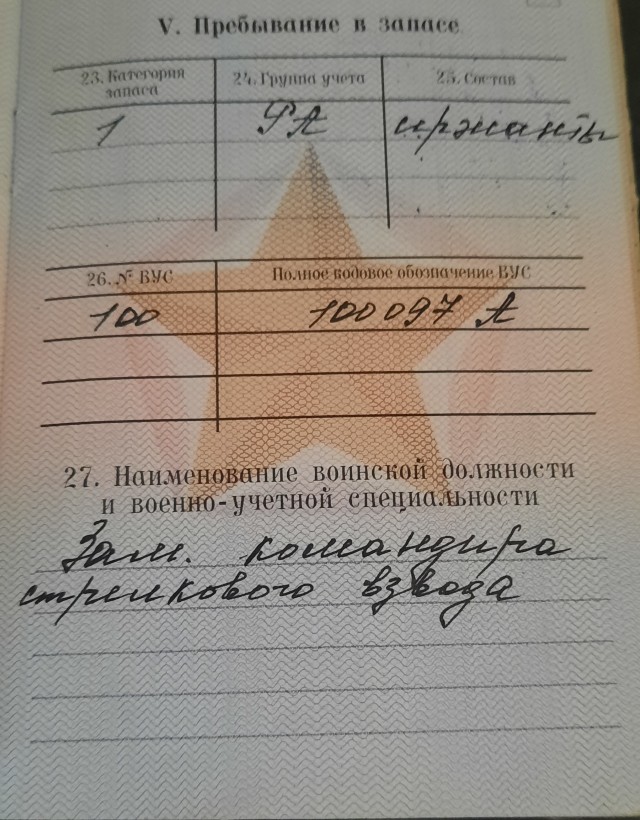 V. Пребывание в запасе
23. Категория запаса 24. Группа учета 25. Состав
1 РА сержанты
26. № ВУС Полное кодовое обозначение ВУС
100 100097 А
27. Наименование воинской должности
и военно-учетной специальности
Зам. командира
стрелкового взвода